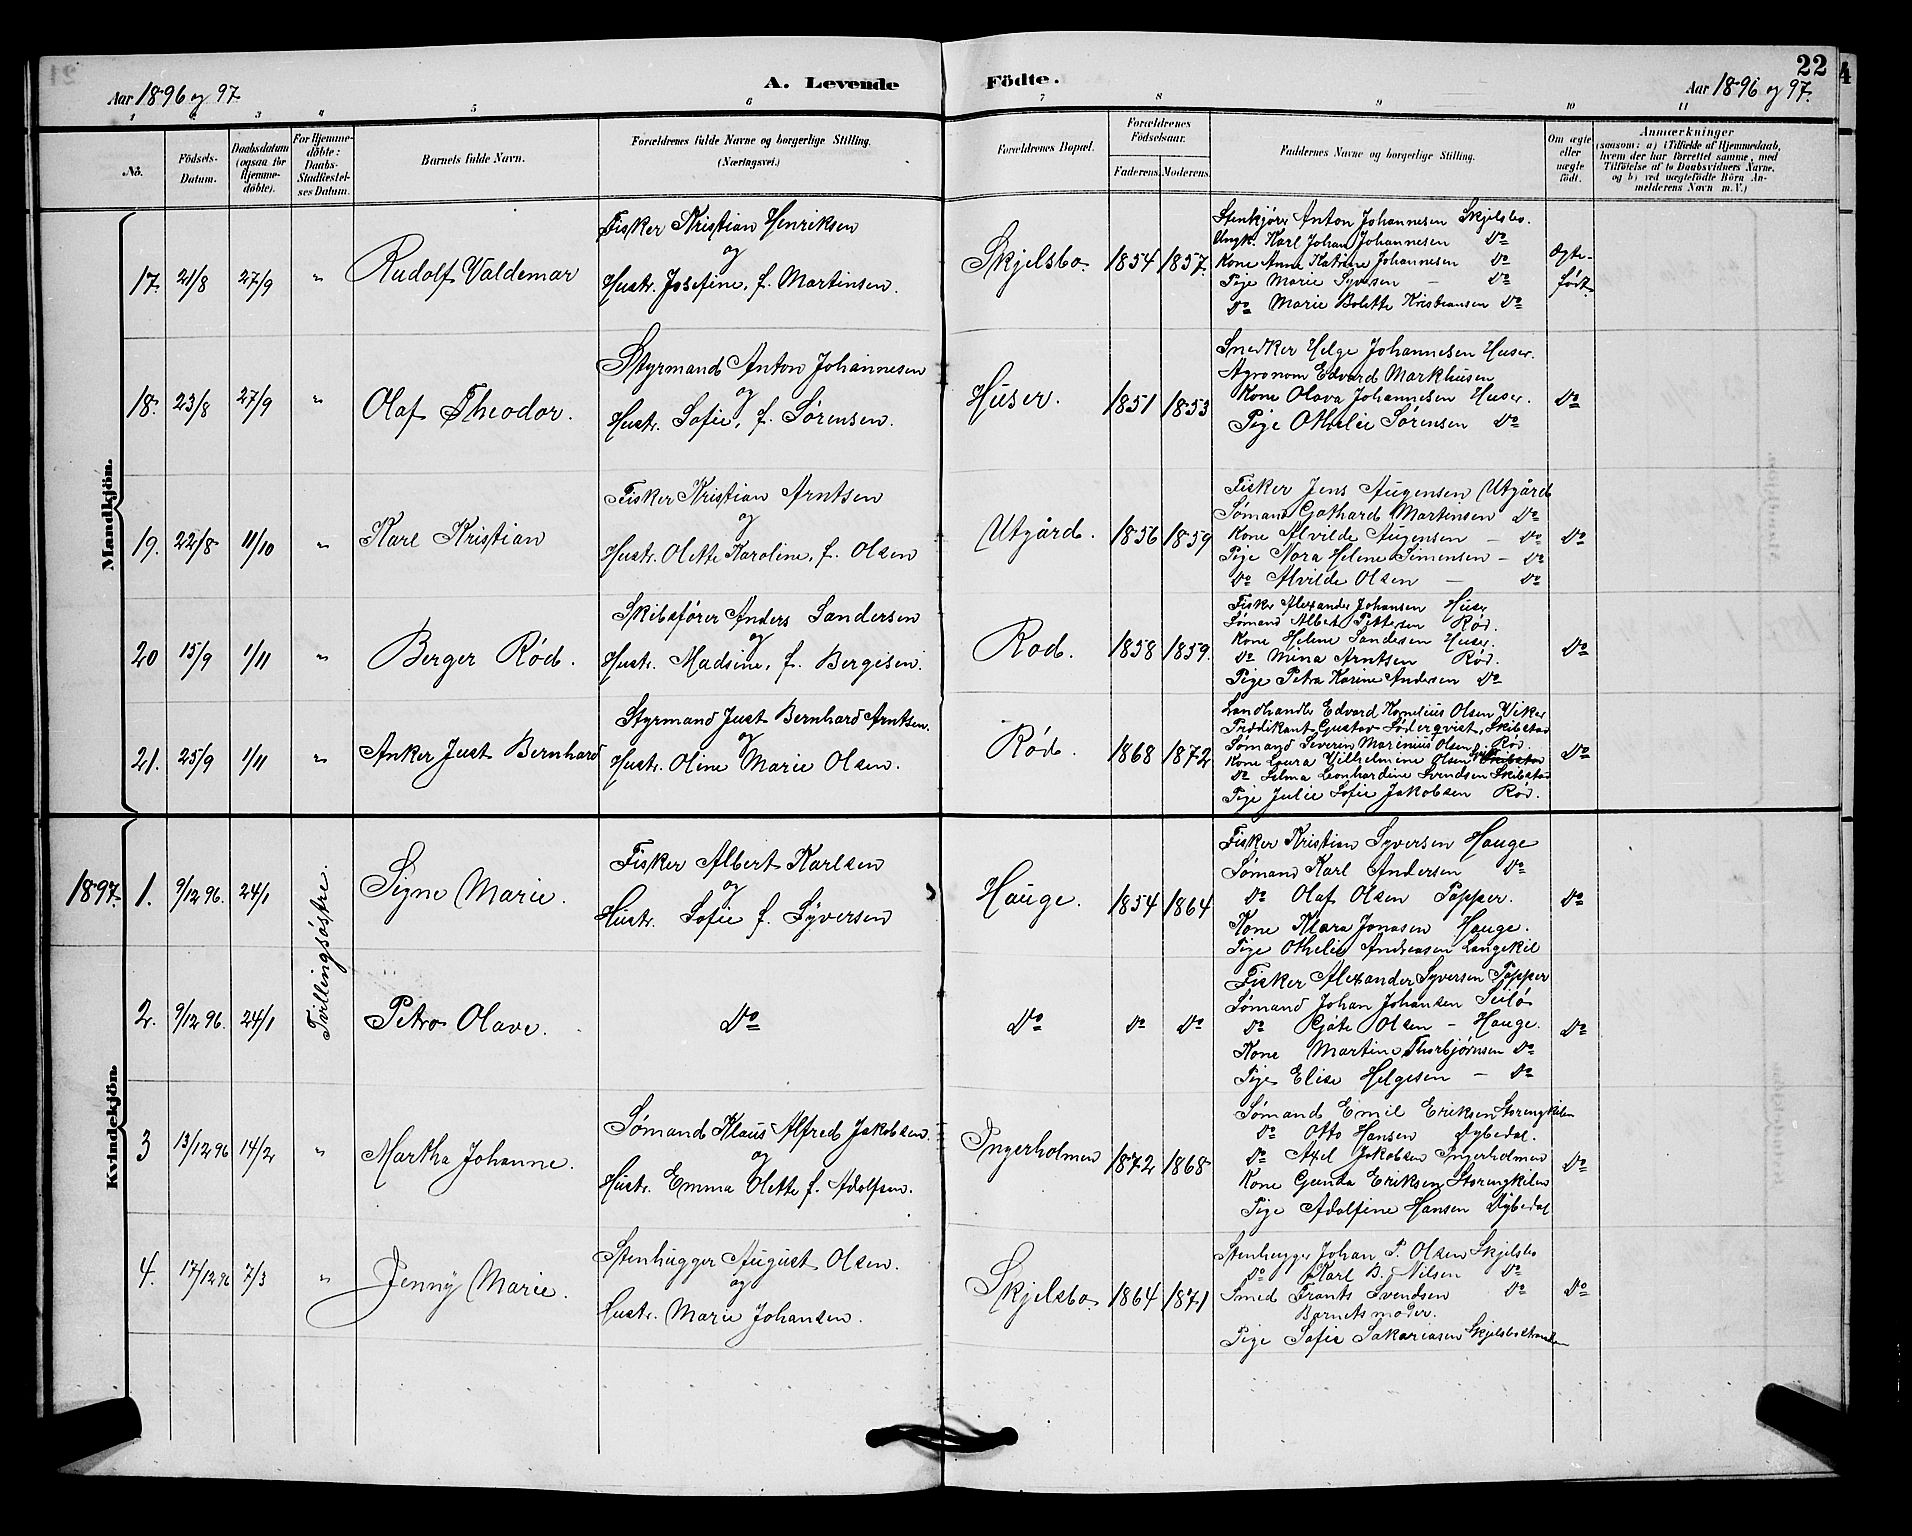 22
Aar 1896 og 97.
A. Levende Födte.
Aar 1896 og 97.
1 2 3 4 5 6 7 8 9 10 11
No.
Födsels-Datum.
Daabsdatum (ogsaa for Hjemme-döbte).
For Hjemme-döbte: Daabs-Stadfæstel-ses Datum.
Barnets fulde Navn.
Forældrenes fulde Navne og borgerlige Stilling. (Næringsvei.)
Forældrenes Bopæl.
Forældrenes Födselsaar.
Faderens. Moderens.
Faddernes Navne og borgerlige Stilling.
Om ægte eller uægte födt.
Anmærkninger
(saasom: a) i Tilfælde af Hjemmedaab, hvem der har forrettet samme, med Tilföielse af to Daabsvidners Navne, og b) ved uægtefödte Börn An-melderens Navn m. V.)
Mandkjön.
17. 21/8 27/9 " Rudolf Valdemar
Fisker Kristian Henriksen
og
Hustr. Josefine, f. Martinsen.
Skjelsbo. 1854 1857.
Stenkjörer Anton Johannesen Skjelsbo.
Ungk. Karl Johan Johannesen Do
Kone Anne Katrine Johannesen Do
Pige Marie Syversen - Do
Do Marie Bolette Kristiansen Do
Ægte-
født.
18. 23/8 27/9 " Olaf Theodor.
Styrmand Anton Johannesen
og
Hustr. Sofie, f. Sørensen.
Huser. 1851 1853
Snedker Helge Johannesen Huser.
Agronom Edvard Markhusen
Kone Olava Johannesen Huser.
Pige Othilie Sørensen Do
Do
19. 22/8 11/10 " Karl Kristian
Fisker Kristian Arntsen
og
Hustr. Olette Karoline, f. Olsen
Utgård. 1856 1859
Fisker Jens Augensen Utgård
Sømand Gothard Martensen Do
Kone Alvilde Augensen - Do
Pige Nora Helene Simensen - Do
Do Alvilde Olsen - Do
Do
20 15/9 1/11 " Berger Rød.
Skibsfører Anders Sandersen
og
Hustr. Madsine, f. Bergisen.
Rød. 1858 1859.
Fisker Alexander Johansen Huser
Sømand Albert Pettersen Rød.
Kone Helene Sandersen Huser.
Do Mina Arntsen Rød.
Pige Petra Karine Andersen Do
Do
21. 25/9 1/11 " Anker Just Bernhard
Styrmand Just Bernhard Arntsen.
og
Hustr. Oline Marie Olsen.
Rød. 1868 1872
Landhandler Edvard Kornelius Olsen Viker
Prædikant Gustav Söderqvist, Skibstad
Sømand Severin Marinius Olsen, Rød.
Kone Laura Vilhelmine Olsen
Do Selma Leonhardine Svendsen Skibstad
Pige Julie Sofie Jakobsen Rød.
Do
Kvindekjön.
1897. 1. 9/12 96. 24/1 Tvillingsøstre. Signe Marie.
Fisker Albert Karlsen
og
Hustr. Sofie f. Syversen
Hauge. 1854 1864
Fisker Kristian Syversen Hauge
Sømand Karl Andersen Do
Do Olaf Olsen Papper.
Kone Klara Jonasen Hauge.
Pige Othilie Andreasen Langekil
Do
2. 9/12 96. 24/1 Petra Olave.
Do
Do Do Do
Fisker Alexander Syversen Papper
Sømand Johan Johansen Seilø
Do Gjøte Olsen - Hauge.
Kone Martine Thorbjørnsen Do
Pige Elise Helgesen - Do
Do
3 13/12 96 14/2 " Martha Johanne.
Sømand Klaus Alfred Jakobsen.
og
Hustr. Emma Olette f. Adolfsen.
Ingerholmen 1872 1868
Sømand Emil Eriksen Storengkilen
Do Otto Hansen Dybedal.
Do Axel Jakobsen Ingerholmen
Kone Gunda Eriksen Storengkilen
Pige Adolfine Hansen Dybedal
Do
4. 17/12 96 7/3 " Jenny Marie.
Stenhugger August Olsen.
og
Hustr. Marie Johansen.
Skjelsbo. 1864 1871
Stenhugger Johan P. Olsen Skjelsbo
Do Karl B. Nilsen Do
Smed Frants Svendsen Do
Barnets moder.
Pige Sofie Sakariasen Skjelsbostranden
Do